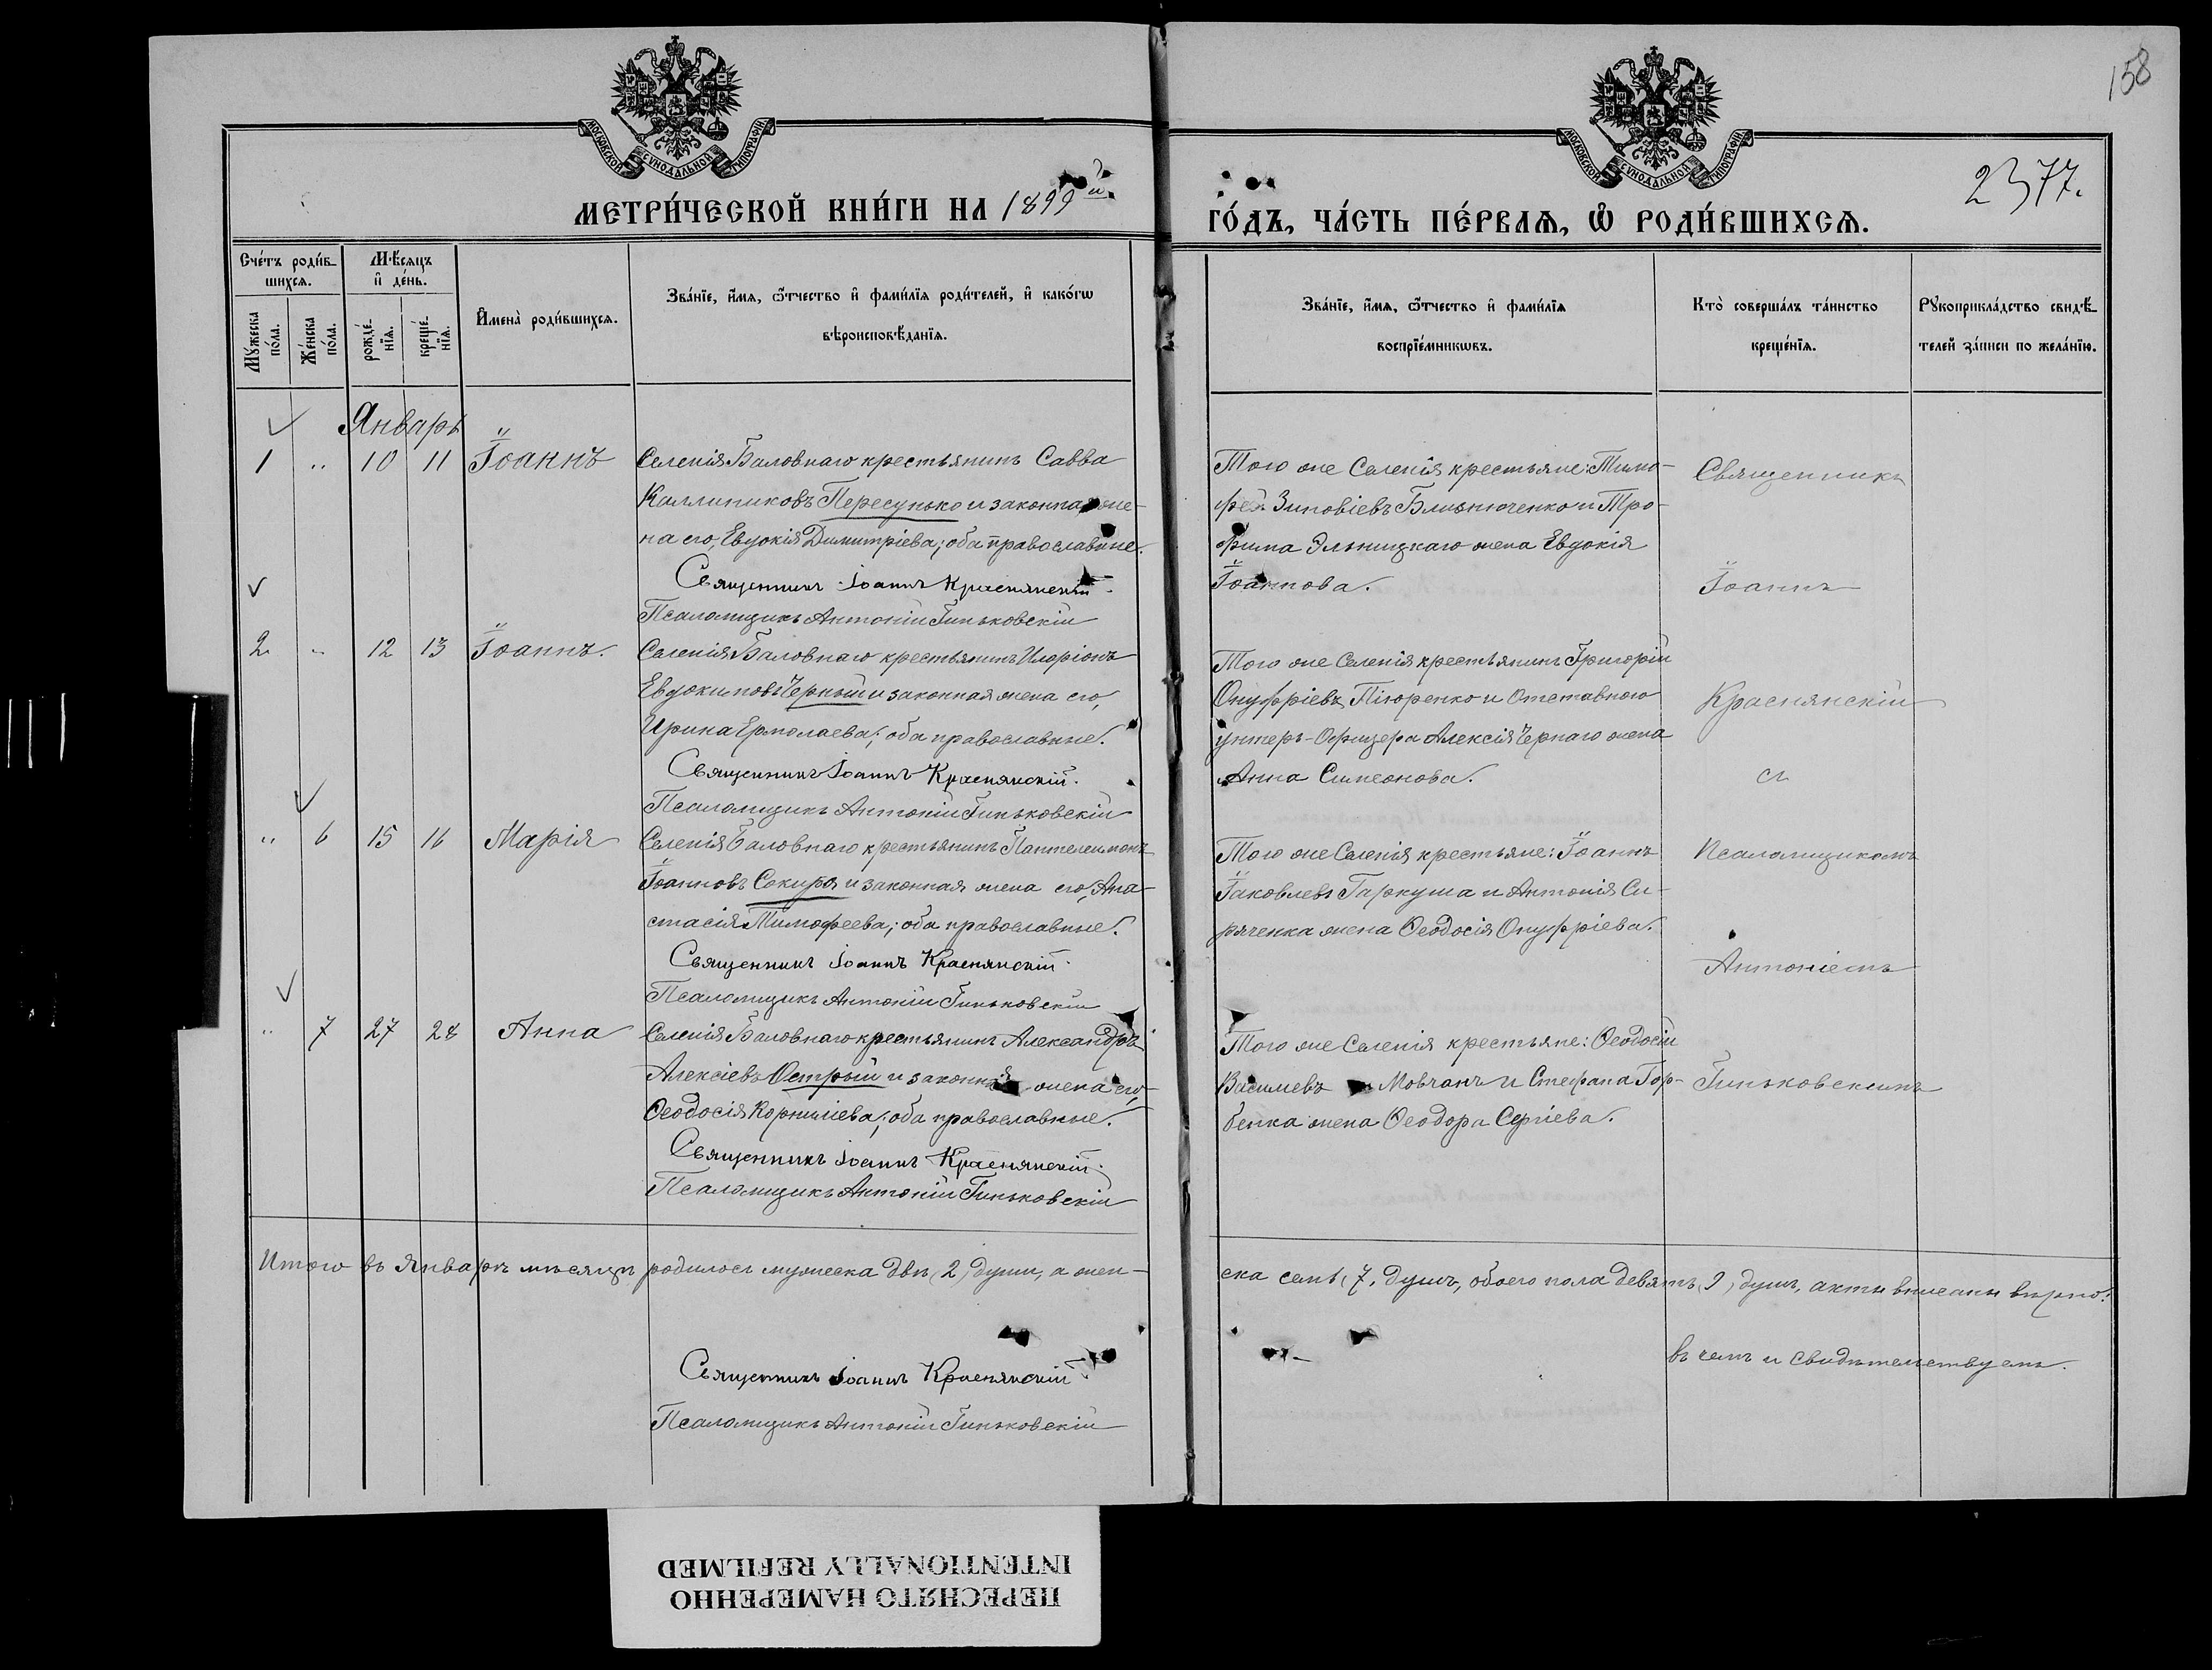 158
МОСКОВСКОЙ СѴНОДАЛЬНОЙ ТИПОГРАФІИ
МОСКОВСКОЙ СѴНОДАЛЬНОЙ ТИПОГРАФІИ
2377.
МЕТРИ́ЧЕСКОЙ КНИ́ГИ НА 1899й
ГО́ДЪ, ЧА́СТЬ ПЕ́РВАѦ, Ѡ҆ РОДИ́ВШИХСѦ.
Счéтъ роди́в-
шихсѧ.
Мꙋ́жеска
по́ла.
Же́нска
по́ла.
Мѣ́сѧцъ
и҆ де́нь.
рожде́-
нїѧ.
креще́-
нїѧ.
И҆мена̀ роди́вшихсѧ.
Зва́нїе, и҆́мѧ, ѻ҆́тчество и҆ фами́лїѧ роди́телей, и҆ како́гѡ
вѣроисповѣ́данїѧ.
Зва́нїе, и҆́мѧ, ѻ҆́тчество и҆ фами́лїѧ
воспрїе́мникѡвъ.
Кто̀ соверша́лъ та́инство
креще́нїѧ.
Рꙋкоприкла́дство свидѣ́-
телей за́писи по жела́нїю.
Январь
1 " 10 11 Іоаннъ
Селенія Баловнаго крестьянинъ Савва
Каллиниковъ Пересунько и законная же-
на его, Евдокія Димитріева; оба православные.
Священникъ Іоаннъ Краснянскій.
Псаломщикъ Антоній Гиньковскій
Того же Селенія крестьяне: Тимо-
фей Зиновіевъ Близнюченко и Тро-
фима Эльницкаго жена Евдокія
Іоаннова.
Священникъ
Іоаннъ
2 " 12 13 Іоаннъ.
Селенія Баловнаго крестьянинъ Иларіонъ
Евдокимовъ Черный и законная жена его,
Ирина Ермолаева; оба православные.
Священникъ Іоаннъ Краснянскій.
Псаломщикъ Антоній Гиньковскій
Того же Селенія крестьянинъ Григорій
Онуфріевъ Пиюренко и Отставного
унтеръ-Офицера Алексія Чернаго жена
Анна Симеонова.
Краснянскій
съ
" 6 15 16 Марія
Селенія Баловнаго крестьянинъ Пантелеимонъ
Іоанновъ Сокира и законная жена его, Ана-
стасія Тимофеева; оба православные.
Священникъ Іоаннъ Краснянскій.
Псаломщикъ Антоній Гиньковскій
Того же Селенія крестьяне: Іоаннъ
Іаковлевъ Гаркуша и Антонія Си-
ряченка жена Ѳеодосія Онуфріева.
Псаломщикомъ
Антоніемъ
" 7 27 28 Анна
Селенія Баловнаго крестьянинъ Александръ
Алексіевъ Острый и законная жена его,
Ѳеодосія Корниліева; оба православные.
Священникъ Іоаннъ Краснянскій.
Псаломщикъ Антоній Гиньковскій
Того же Селенія крестьяне: Ѳеодосій
Василіевъ Мовчанъ и Стефана Гор-
бенка жена Ѳеодора Сергіева.
Гиньковскимъ
Итого въ Январѣ мѣсяцѣ родилось мужеска двѣ (2) души, а жен-
ска семь (7) душъ, обоего пола девять (9) душъ, акты вписаны вѣрно:
въ чемъ и свидѣтельствуемъ.
Священникъ Іоаннъ Краснянскій
Псаломщикъ Антоній Гиньковскій
ПЕРЕСНЯТО НАМЕРЕННО
INTENTIONALLY REFILMED